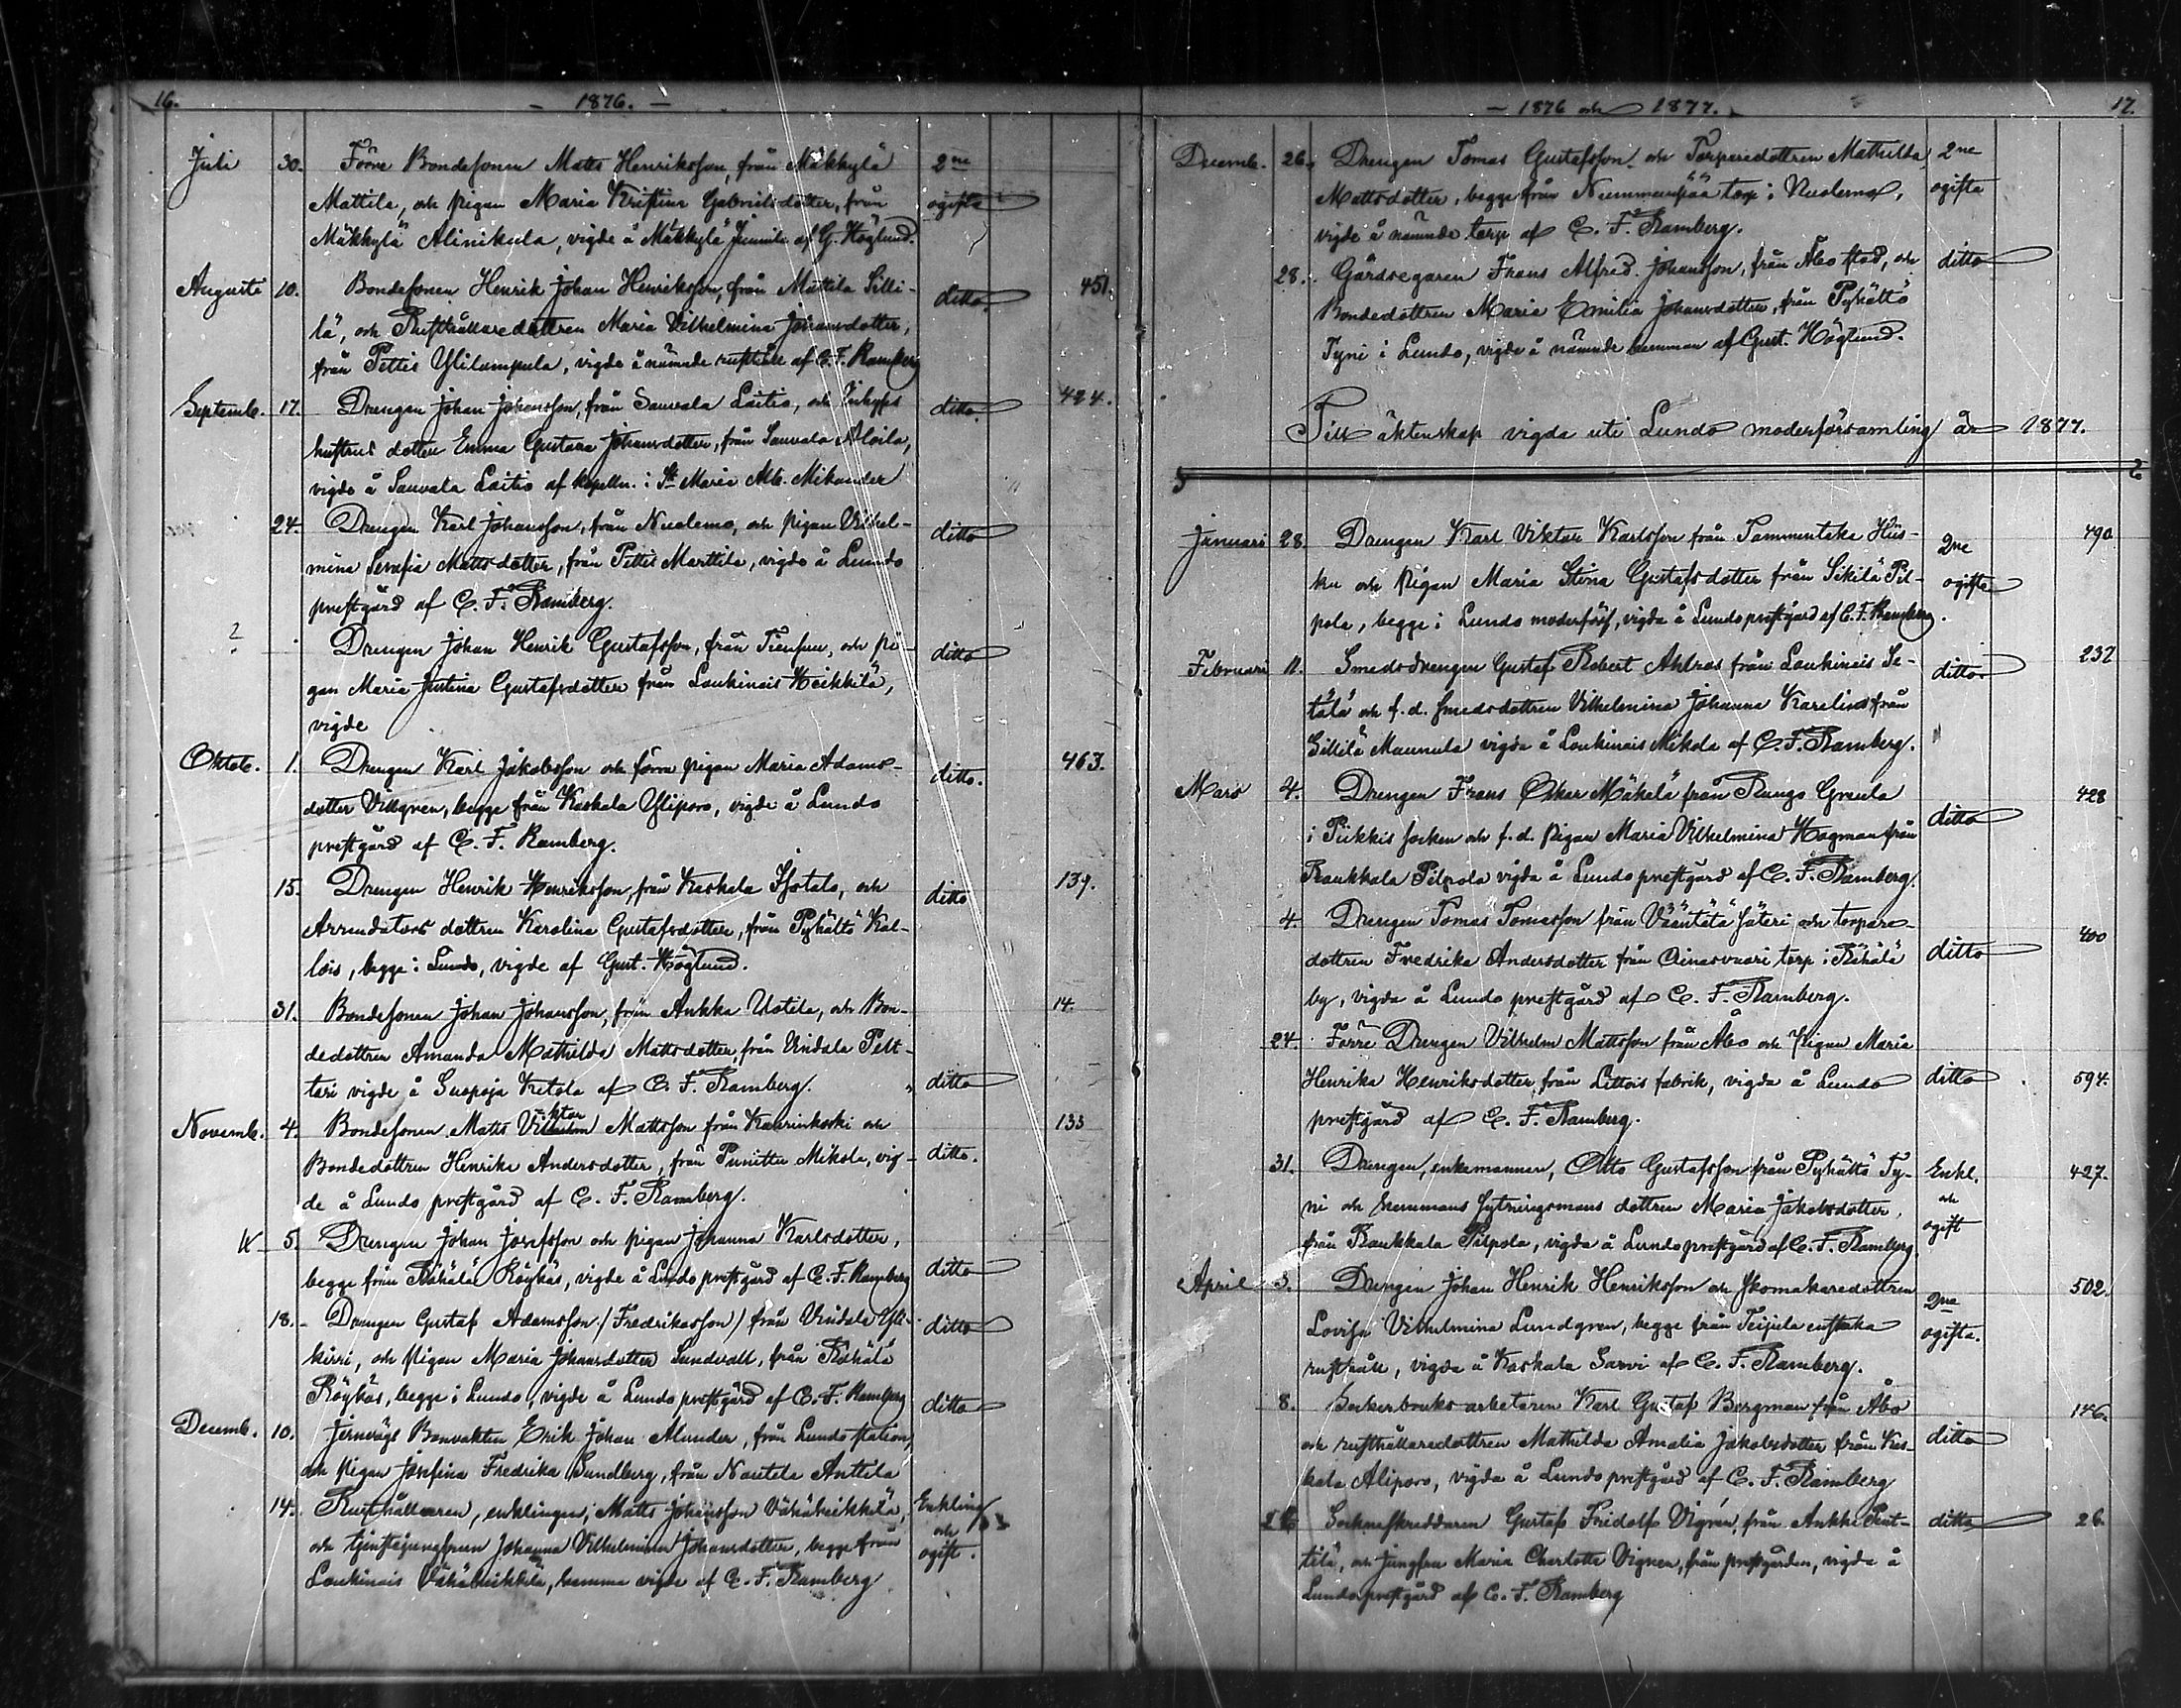 16.
— 1876. —
Juli 30. Förre Bondesonen Matts Henriksson, från Mäkkylä 2ne
Mattila, och pigan Maria Kristina Gabrielsdotter, från ogifta
Mäkkylä Alinikula, vigde å Mäkkylä Junnila af G. Höglund.
Augusti 10. Bondesonen Henrik Johan Henriksson, från Mattila Silli- ditto 451.
lä, och Rusthållaredottren Maria Vilhelmina Johansdotter,
från Pettis Ylilampula, vigde å nämnde rusthåll af C. F. Ramberg
Septemb. 17. Drengen Johan Johansson, från Sauvala Laitio, och Inhyses ditto 424.
hustrus dotter Emma Gustava Johansdotter, från Sauvala Aloila,
vigde å Sauvala Laitio af Kapelln. i St Marie Alb. Mikander
24. Drengen Karl Johansson, från Nuolemo, och pigan Vilhel- ditto
mina Serafia Mattsdotter, från Pettis Marttila, vigde å Lundo
prestgård af C. F. Ramberg.
? Drengen Johan Henrik Gustafsson, från Tiensuu, och pi- ditto
gan Maria Justina Gustafsdotter från Loukinais Heikkilä,
vigde
Oktob. 1. Drengen Karl Jakobsson och förra pigan Maria Adams- ditto. 463.
dotter Villgren, begge från Kaskala Yliporo, vigde å Lundo
prestgård af C. F. Ramberg.
15. Drengen Henrik Henriksson, från Kaskala Isotalo, och ditto 139.
Arrendators dottren Karolina Gustafsdotter, från Pyhältö Kal-
lois, begge i Lundo, vigde af Gust. Höglund.
31. Bondesonen Johan Johansson, från Ankka Uotila, och Bon- 14.
dedottren Amanda Mathilda Mattsdotter, från Vindala Pelt-
tari vigde å Suopoja Ketola af C. F. Ramberg. ditto
Novemb. 4. Bondesonen Matts Viktor Mattsson från Kaurinkoski och 133
Bondedottren Henrika Andersdotter, från Punittu Mikola, vig- ditto.
de å Lundo prestgård af C. F. Ramberg.
5. Drengen Johan Josefsson och pigan Johanna Karlsdotter,
begge från Rähälä Röykäs, vigde å Lundo prestgård af C. F. Ramberg ditto
18. Drengen Gustaf Adamsson (Fredriksson) från Vindala Yli- ditto
kirri, och pigan Maria Johansdotter Sundvall, från Rähälä
Röykäs, begge i Lundo, vigde å Lundo prestgård af C. F. Ramberg ditto
Decemb. 10. Jernvägs Banvakten Erik Johan Alander, från Lundo station,
och pigan Josefina Fredrika Sundberg, från Nautela Anttila
14. Rusthållaren, enklingen, Matts Johansson Vähäheikkilä, Enkling
och tjenstejungfrun Johanna Vilhelmina Johansdotter, begge från och ogift.
Loukinais Vähäheikkilä, hemma vigde af C. F. Ramberg
— 1876 och 1877.
17.
Decemb. 26. Drengen Tomas Gustafsson och Torparedottren Mathilda 2ne
Mattsdotter, begge från Nummenpää torp i Nuolemo, ogifta
vigde å nämnde torp af C. F. Ramberg.
28. Gårdsegaren Frans Alfred Johansson, från Åbo stad, och ditto
Bondedottren Maria Emilia Johansdotter, från Pyhältö
Tyni i Lundo, vigde å nämnde hemman af Gust. Höglund.
Till äktenskap vigda uti Lundo moderförsamling år 1877.
Januari 28 Drengen Karl Viktor Karlsson från Tammentaka Hiis- 2ne 490
ku och Pigan Maria Stina Gustafsdotter från Sikilä Pil- ogifta
pola, begge i Lundo moderförs, vigda å Lundo prestgård af C. F. Ramberg.
Februari 11. Smedsdrengen Gustaf Robert Ahlros från Loukinais Se- ditto 232
tälä och f. d. smedsdottren Vilhelmina Johanna Karelius från
Sillilä Maunula vigda å Loukinais Mikola af C. F. Ramberg.
Mars 4. Drengen Frans Oskar Mäkelä från Runge Greula 428
i Piikkis socken och f. d. Pigan Maria Vilhelmina Hagman från ditto
Raukkala Pilpola vigda å Lundo prestgård af C. F. Ramberg.
4. Drengen Tomas Tomasson från Vääntälä säteri och torpare-
dottren Fredrika Andersdotter från Ainasvuori torp i Rähälä ditto 400
by, vigda å Lundo prestgård af C. F. Ramberg.
24. Förre Drengen Vilhelm Mattsson från Åbo och Pigan Maria
Henrika Henriksdotter från Littois fabrik, vigda å Lundo ditto 594.
prestgård af C. F. Ramberg.
31. Drengen, enkemannen, Otto Gustafsson från Pyhältö Ty- Enkl. 427.
ni och hemmans sytningsmans dottren Maria Jakobsdotter, och
från Raukkala Pilpola, vigda å Lundo prestgård af C. F. Ramberg. ogift
April 3. Drengen Johan Henrik Henriksson och skomakaredottren 2ne 502.
Lovisa Vilhelmina Lundgren, begge från Teijula enstaka ogifta.
rusthåll, vigda å Kaskala Savvi af C. F. Ramberg.
8. Sockerbruks arbetaren Karl Gustaf Bergman från Åbo 146.
och rusthållaredottren Mathilda Amalia Jakobsdotter från Kas- ditto
kala Aliporo, vigda å Lundo prestgård af C. F. Ramberg
Sockneskreddaren Gustaf Fridolf Vigrén, från Ankka Pent- ditto 26.
tilä, och jungfru Maria Charlotta Vigren, från prestgården, vigda å
Lundo prestgård af C. F. Ramberg